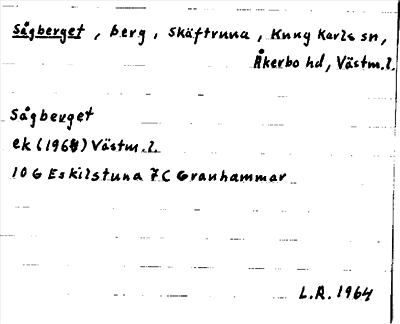 Sågberget, berg, Skäftruna, Kung Karls sn,
Åkerbo hd, Västm.l.
Sågberget
ek (1964) Västm.l.
10G Eskilstuna 7C Granhammar
L.R. 1964